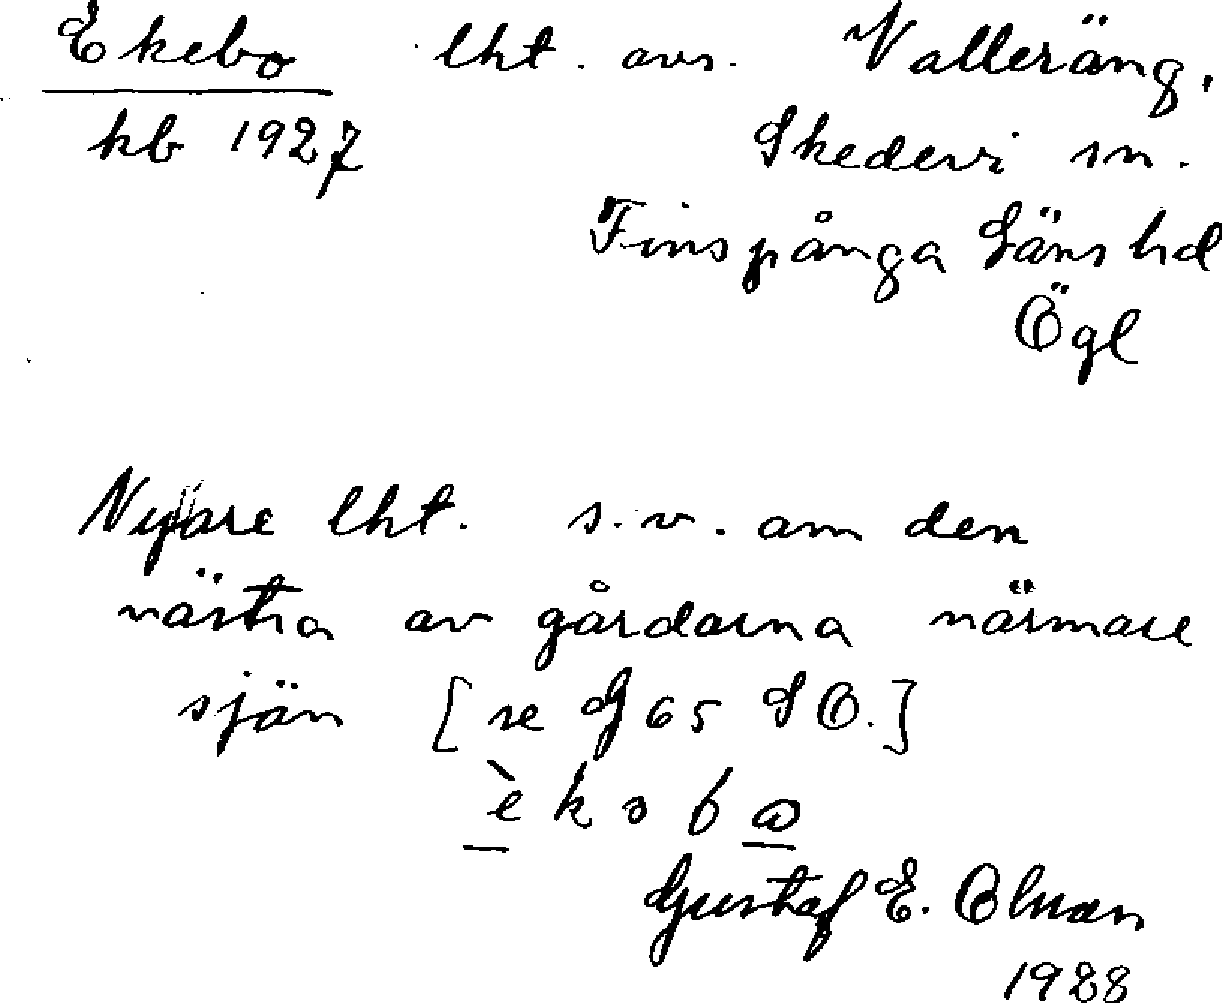 Ekebo lht. avs. Valleräng,
kb 1927 Skedevi sn.
Finspånga Läns hd
Ögl
Nyare lht. s.v. om den
västra av gårdarna närmare
sjön [se G 65 SO.]
Gustaf E. Olsson
1928